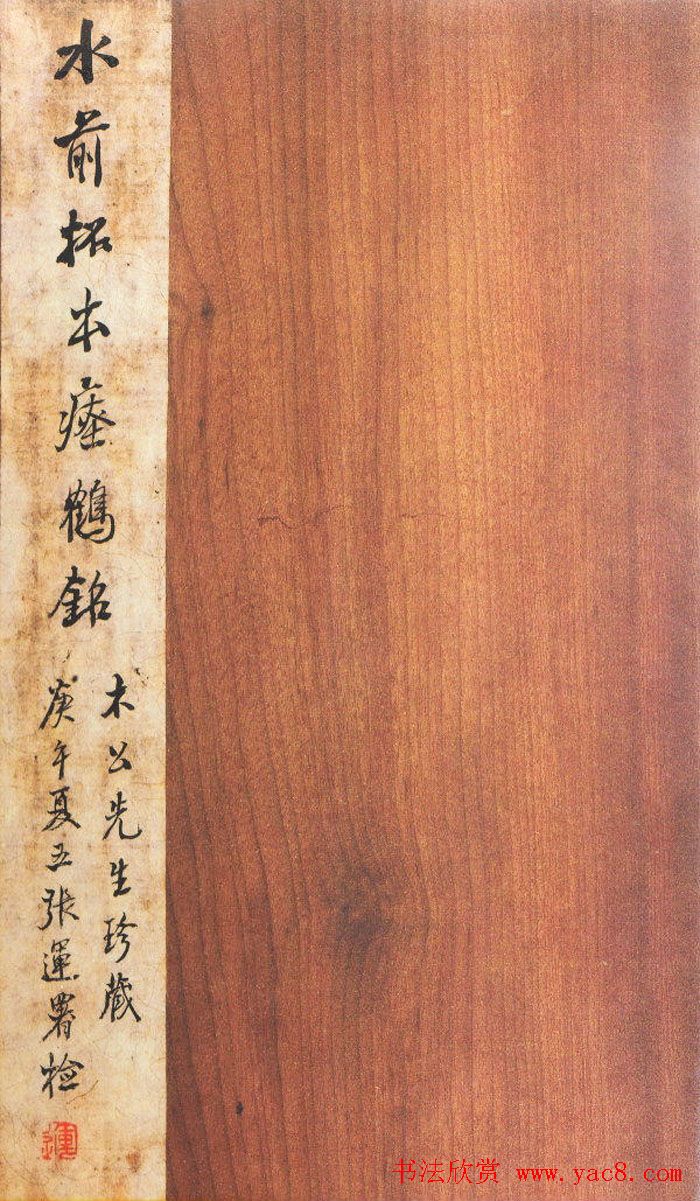 水前拓本瘞鶴銘
木公先生珍藏
庚午夏五張運署檢
運
书法欣赏 www.yac8.com